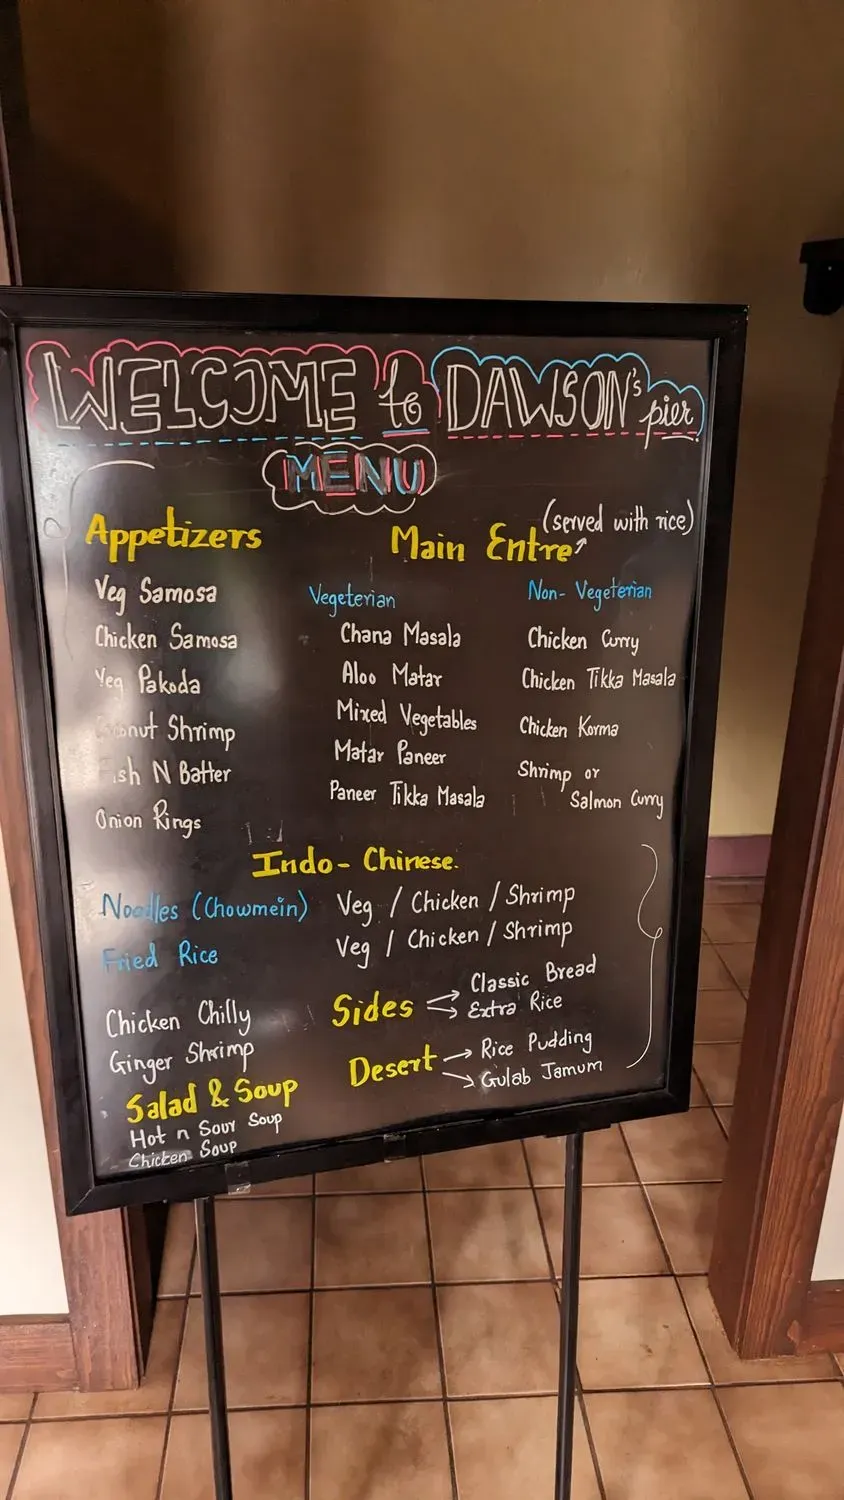 WELCOME to DAWSON's pier
MENU
Appetizers
Veg Samosa
Chicken Samosa
Veg Pakoda
Shrimp
N Batter
Onion Rings
Main Entre (served with rice)
Vegeterian
Chana Masala
Aloo Matar
Mixed Vegetables
Matar Paneer
Paneer Tikka Masala
Non-Vegeterian
Chicken Curry
Chicken Tikka Masala
Chicken Korma
Shrimp or
Salmon Curry
Indo-Chinese.
Noodles (Chowmein) Veg / Chicken / Shrimp
Fried Rice Veg / Chicken / Shrimp
Chicken Chilly
Ginger Shrimp
Salad & Soup
Hot n Sour Soup
Chicken Soup
Sides
Classic Bread
Extra Rice
Desert
Rice Pudding
Gulab Jamum